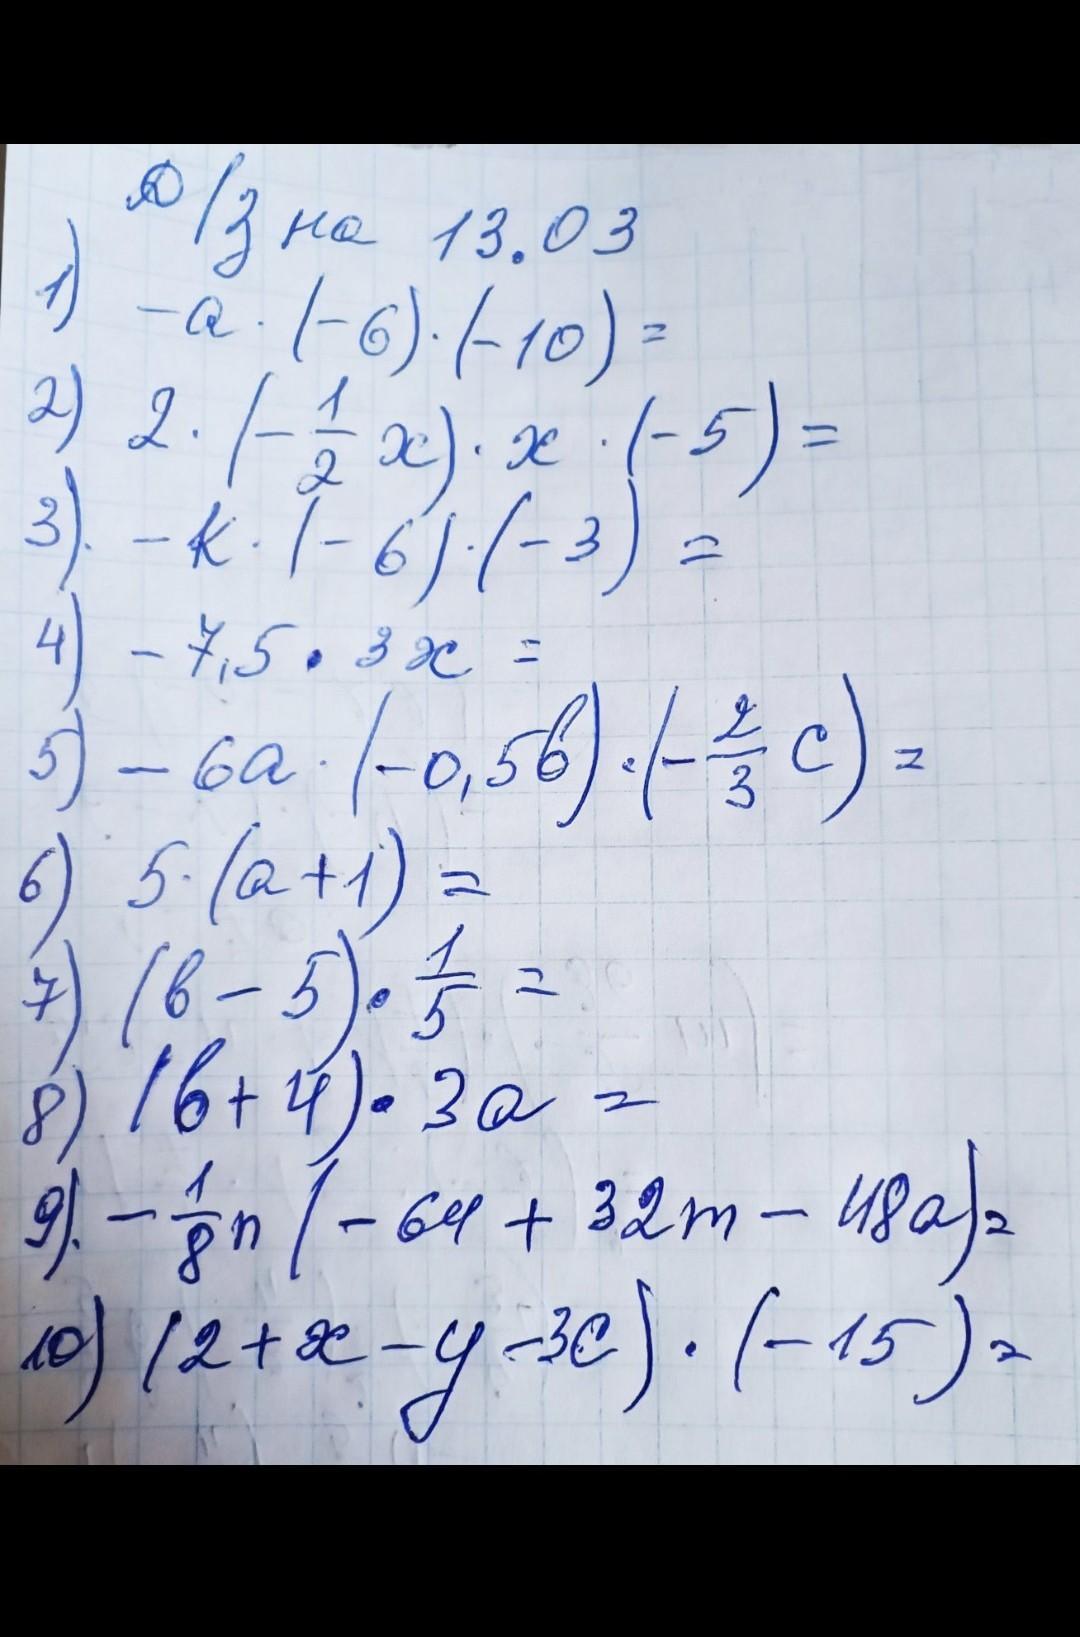 Д/з на 13.03
1) -a · (-6) · (-10) =
2) 2 · (-1/2 x) · x · (-5) =
3). -k · (-6) · (-3) =
4) -7,5 · 3x =
5) -6a · (-0,5b) · (-2/3 c) =
6) 5 · (a+1) =
7) (b - 5) · 1/5 =
8) (b + 4) · 3a =
9). -1/8 n (-64 + 32m - 48a) =
10) (2 + x - y - 3c) · (-15) =